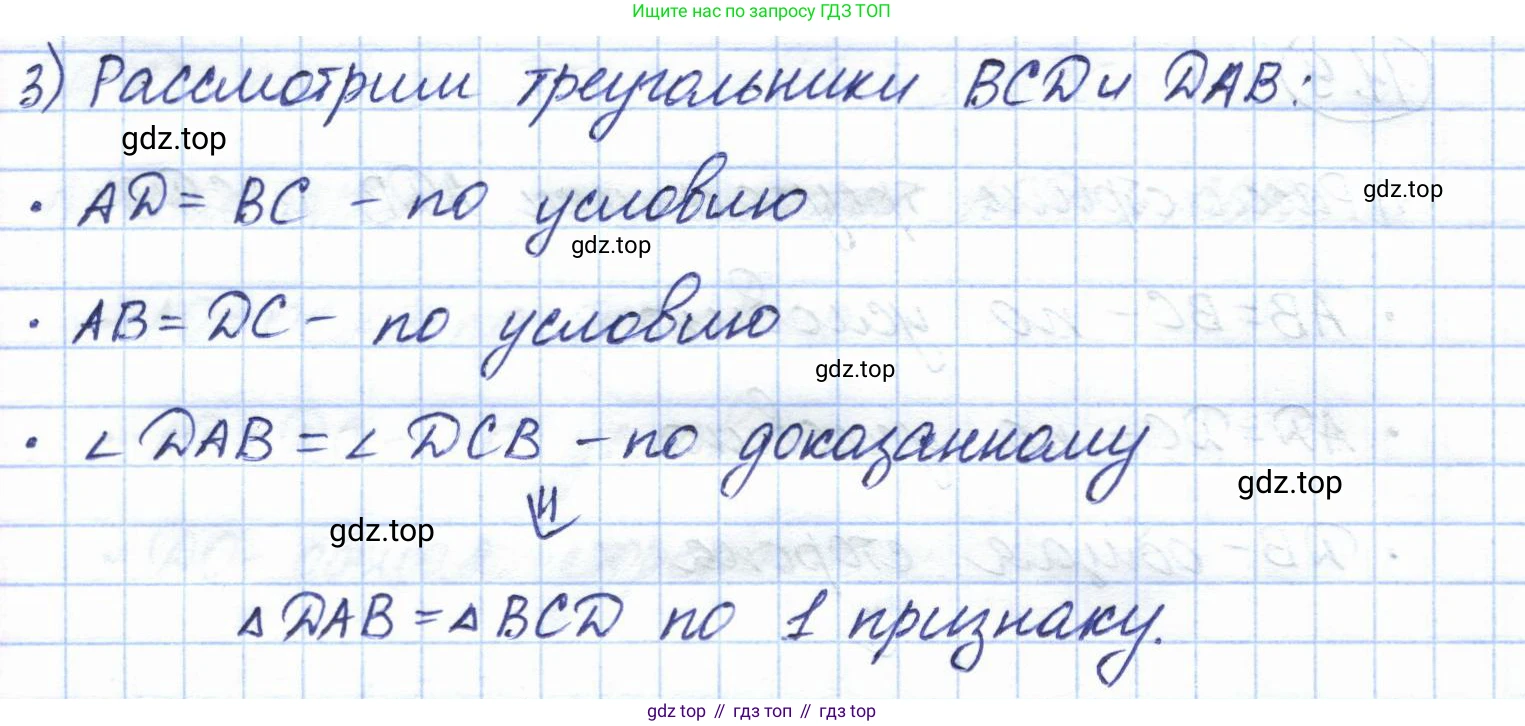 Ищите нас по запросу ГДЗ ТОП
3) Рассмотрим треугольники BCD и DAB:
gdz.top
• AD = BC - по условию
gdz.top
gdz.top
• AB = DC - по условию
gdz.top
• ∠ DAB = ∠ DCB - по доказанному
gdz.top
gdz.top
⇓
△ DAB = △ BCD по 1 признаку.
gdz top // гдз топ // гдз top